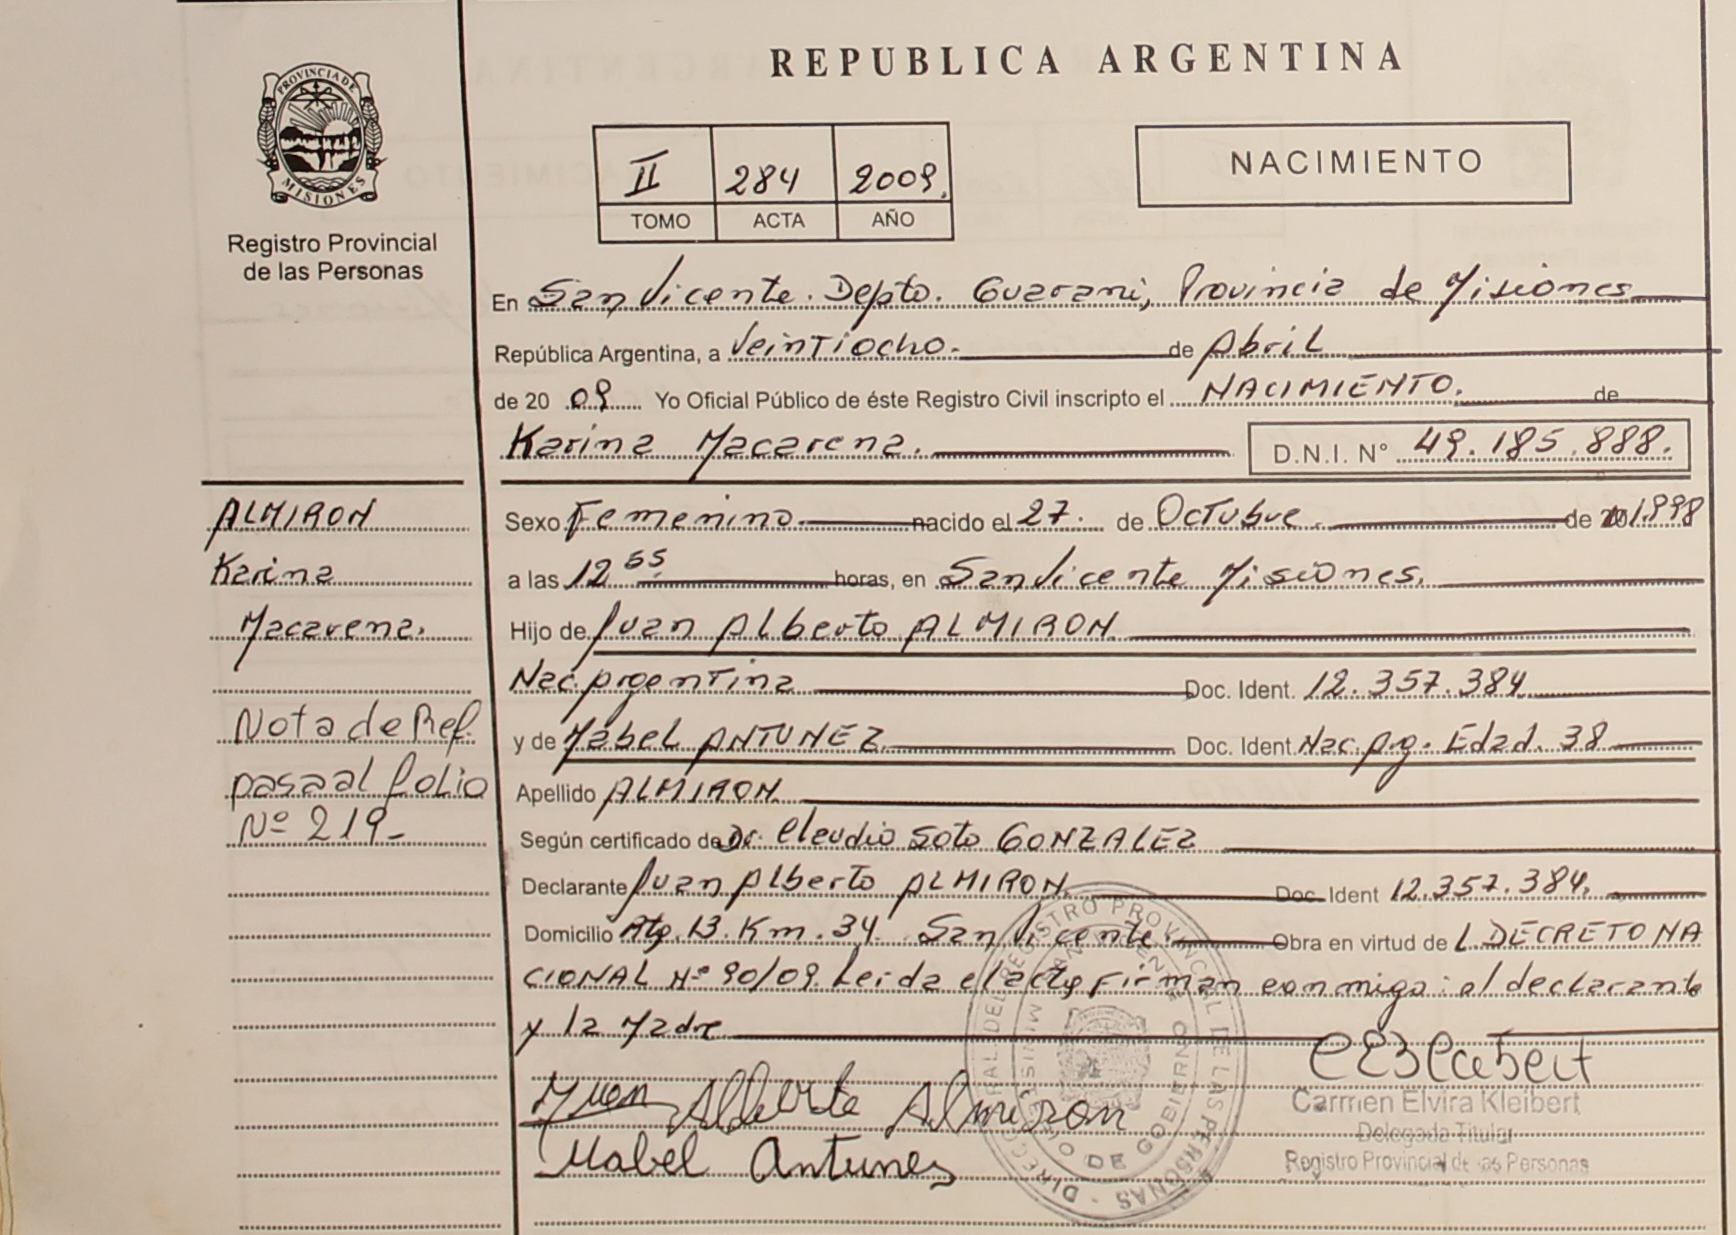 REPUBLICA ARGENTINA
PROVINCIA DE
MISIONES
Registro Provincial
de las Personas
II 284 2009.
TOMO ACTA AÑO
NACIMIENTO
En San Vicente. Depto. Guarani, Provincia de Misiones
República Argentina, a Veintiocho. de Abril
de 20 09 Yo Oficial Público de éste Registro Civil inscripto el NACIMIENTO. de
Karina Macarena. D.N.I. N° 49.185.888.
ALMIRON
Karina
Macarena.
Nota de Ref.
pasa al folio
Nº 219-
Sexo Femenino nacido el 27. de Octubre. de 1998
a las 12 55 horas, en San Vicente Misiones.
Hijo de Juan Alberto ALMIRON
Nac. Argentina Doc. Ident. 12.357.384
y de Mabel ANTUNEZ Doc. Ident. Nac. Arg. Edad. 38
Apellido ALMIRON
Según certificado de Dr. Claudio Soto GONZALEZ
Declarante Juan Alberto ALMIRON. Doc. Ident 12.357.384.
Domicilio Rta. 13. Km. 34 San Vicente. Obra en virtud de L DECRETO NA
CIONAL Nº 90/09. Leida el acta firman conmigo: el declarante
y la Madre
Juan Alberto Almiron
Mabel Antunes
Carmen Elvira Kleibert
Delegada Titular
Registro Provincial de las Personas